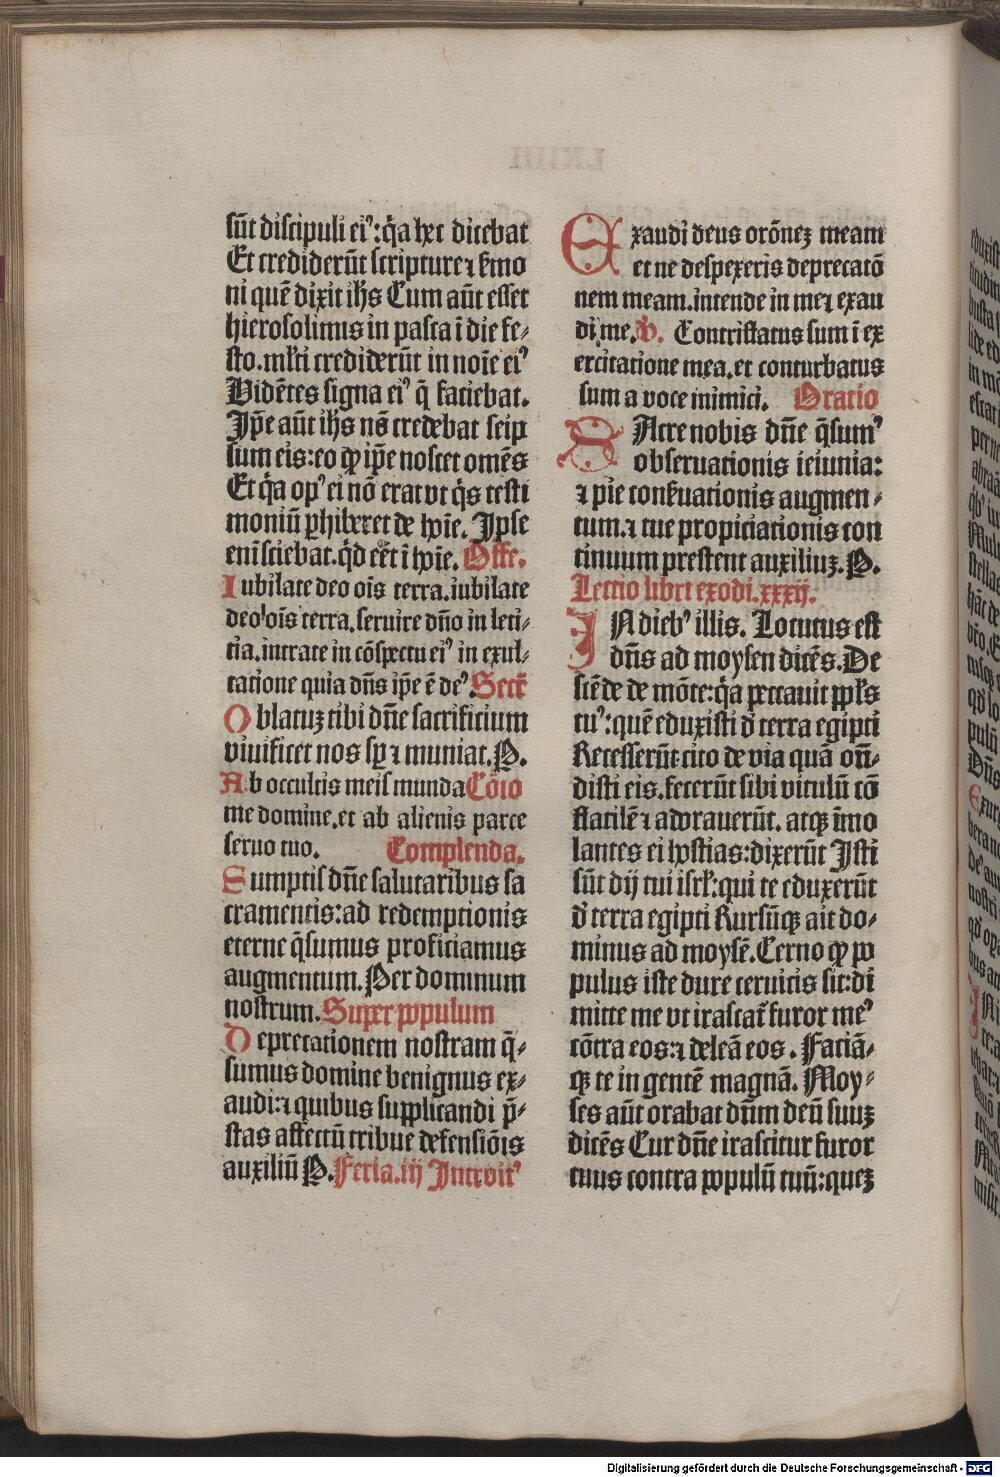 sūt discipuli eiꝰ:q̄a hec dicebat
Et crediderūt scripture ⁊ s̄mo
ni quē dixit ih̄s Cum aūt esset
hierosolimis in pasca ī die fe-
sto.ml̄ti crediderūt in noīe eiꝰ
Vidētes signa eiꝰ q̄ faciebat.
Ip̄e aūt ih̄s nō credebat seip
sum eis:eo ꝙ ip̄e nosceret omēs
Et q̄a opꝰ ei nō erat vt q̄s testi
moniū ꝑhiberet de hoīe. Ipse
enī sciebat.q̄d eēt ī hoīe. Offe.
Iubilate deo oīs terra.iubilate
deo oīs terra.seruire dño in leti-
tia.intrate in cōspectu eiꝰ in exul-
tatione quia dñs ip̄e ē deꝰ. Secr̄
Oblatuꝫ tibi dñe sacrificium
viuificet nos sꝑ ⁊ muniat. P.
Ab occultis meis munda Cōio
me domine.et ab alienis parce
seruo tuo. Complenda.
Sumptis dñe salutaribus sa
cramentis:ad redemptionis
eterne q̄sumus proficiamus
augmentum. Per dominum
nostrum. Super populum
Deprecationem nostram q̄-
sumus domine benignus ex-
audi:⁊ quibus supplicandi p̄-
stas affectū tribue defensiōis
auxiliū P. Feria.iij Introitꝰ
Exaudi deus orōneꝫ meam
et ne despexeris deprecatō
nem meam.intende in me ⁊ exau
di me. V. Contristatus sum ī ex
ercitatione mea.et conturbatus
sum a voce inimici. Oratio
SAcre nobis dñe q̄sumꝰ
obseruationis ieiunia:
⁊ pie conẜuationis augmen-
tum.⁊ tue propiciationis con
tinuum prestent auxiliuꝫ. P.
Lectio libri exodi.xxxij.
IN diebꝰ illis. Locutus est
dñs ad moysen dicēs. De
scēde de mōte:q̄a peccauit ppl̄s
tuꝰ:quē eduxisti d̄ terra egipti
Recesserūt cito de via quā on̄-
disti eis.fecerūt sibi vitulū cō
flatilē ⁊ adorauerūt. atqꝫ īmo
lantes ei hostias:dixerūt Isti
sūt dij tui isrl̄:qui te eduxerūt
d̄ terra egipti Rursūqꝫ ait do-
minus ad moysē. Cerno ꝙ po
pulus iste dure ceruicis sit:di
mitte me vt irascat̄ furor meꝰ
cōtra eos:⁊ deleā eos. Faciā-
qꝫ te in gentē magnā. Moy-
ses aūt orabat dūm deū suuꝫ
dicēs Cur dñe irascitur furor
tuus contra populū tuū:queꝫ
Digitalisierung gefördert durch die Deutsche Forschungsgemeinschaft - DFG